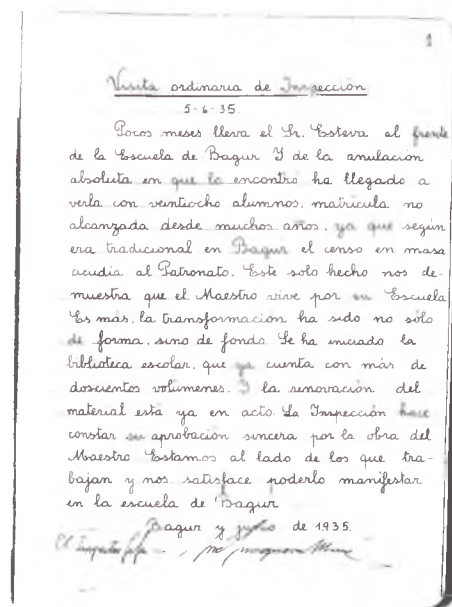 1
Visita ordinaria de Inspección
5-6-35.
Pocos meses lleva el Sr. Esteva al frente
de la Escuela de Bagur Y de la anulación
absoluta en que la encontro ha llegado a
verla con veintiocho alumnos, matrícula no
alcanzada desde muchos años, ya que según
era tradicional en Bagur el censo en masa
acudia al Patronato. Este solo hecho nos de-
muestra que el Maestro vive por su Escuela
Es más, la transformación ha sido no sólo
de forma, sino de fondo. Se ha iniciado la
biblioteca escolar, que ya cuenta con más de
doscientos volúmenes. Y la renovación del
material está ya en acto. La Inspección hace
constar su aprobación sincera por la obra del
Maestro Estamos al lado de los que tra-
bajan y nos satisface poderlo manifestar
en la escuela de Bagur
Bagur y de 1935.
El Inspector